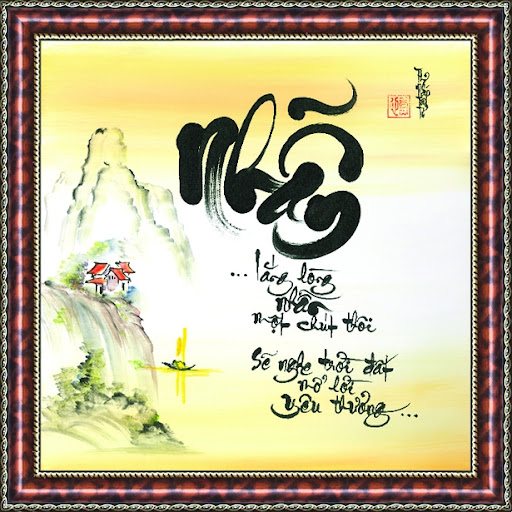 Nhẫn
... lắng lòng
nhẫn
một chút thôi
Sẽ nghe trời đất
mở lối
yêu thương...